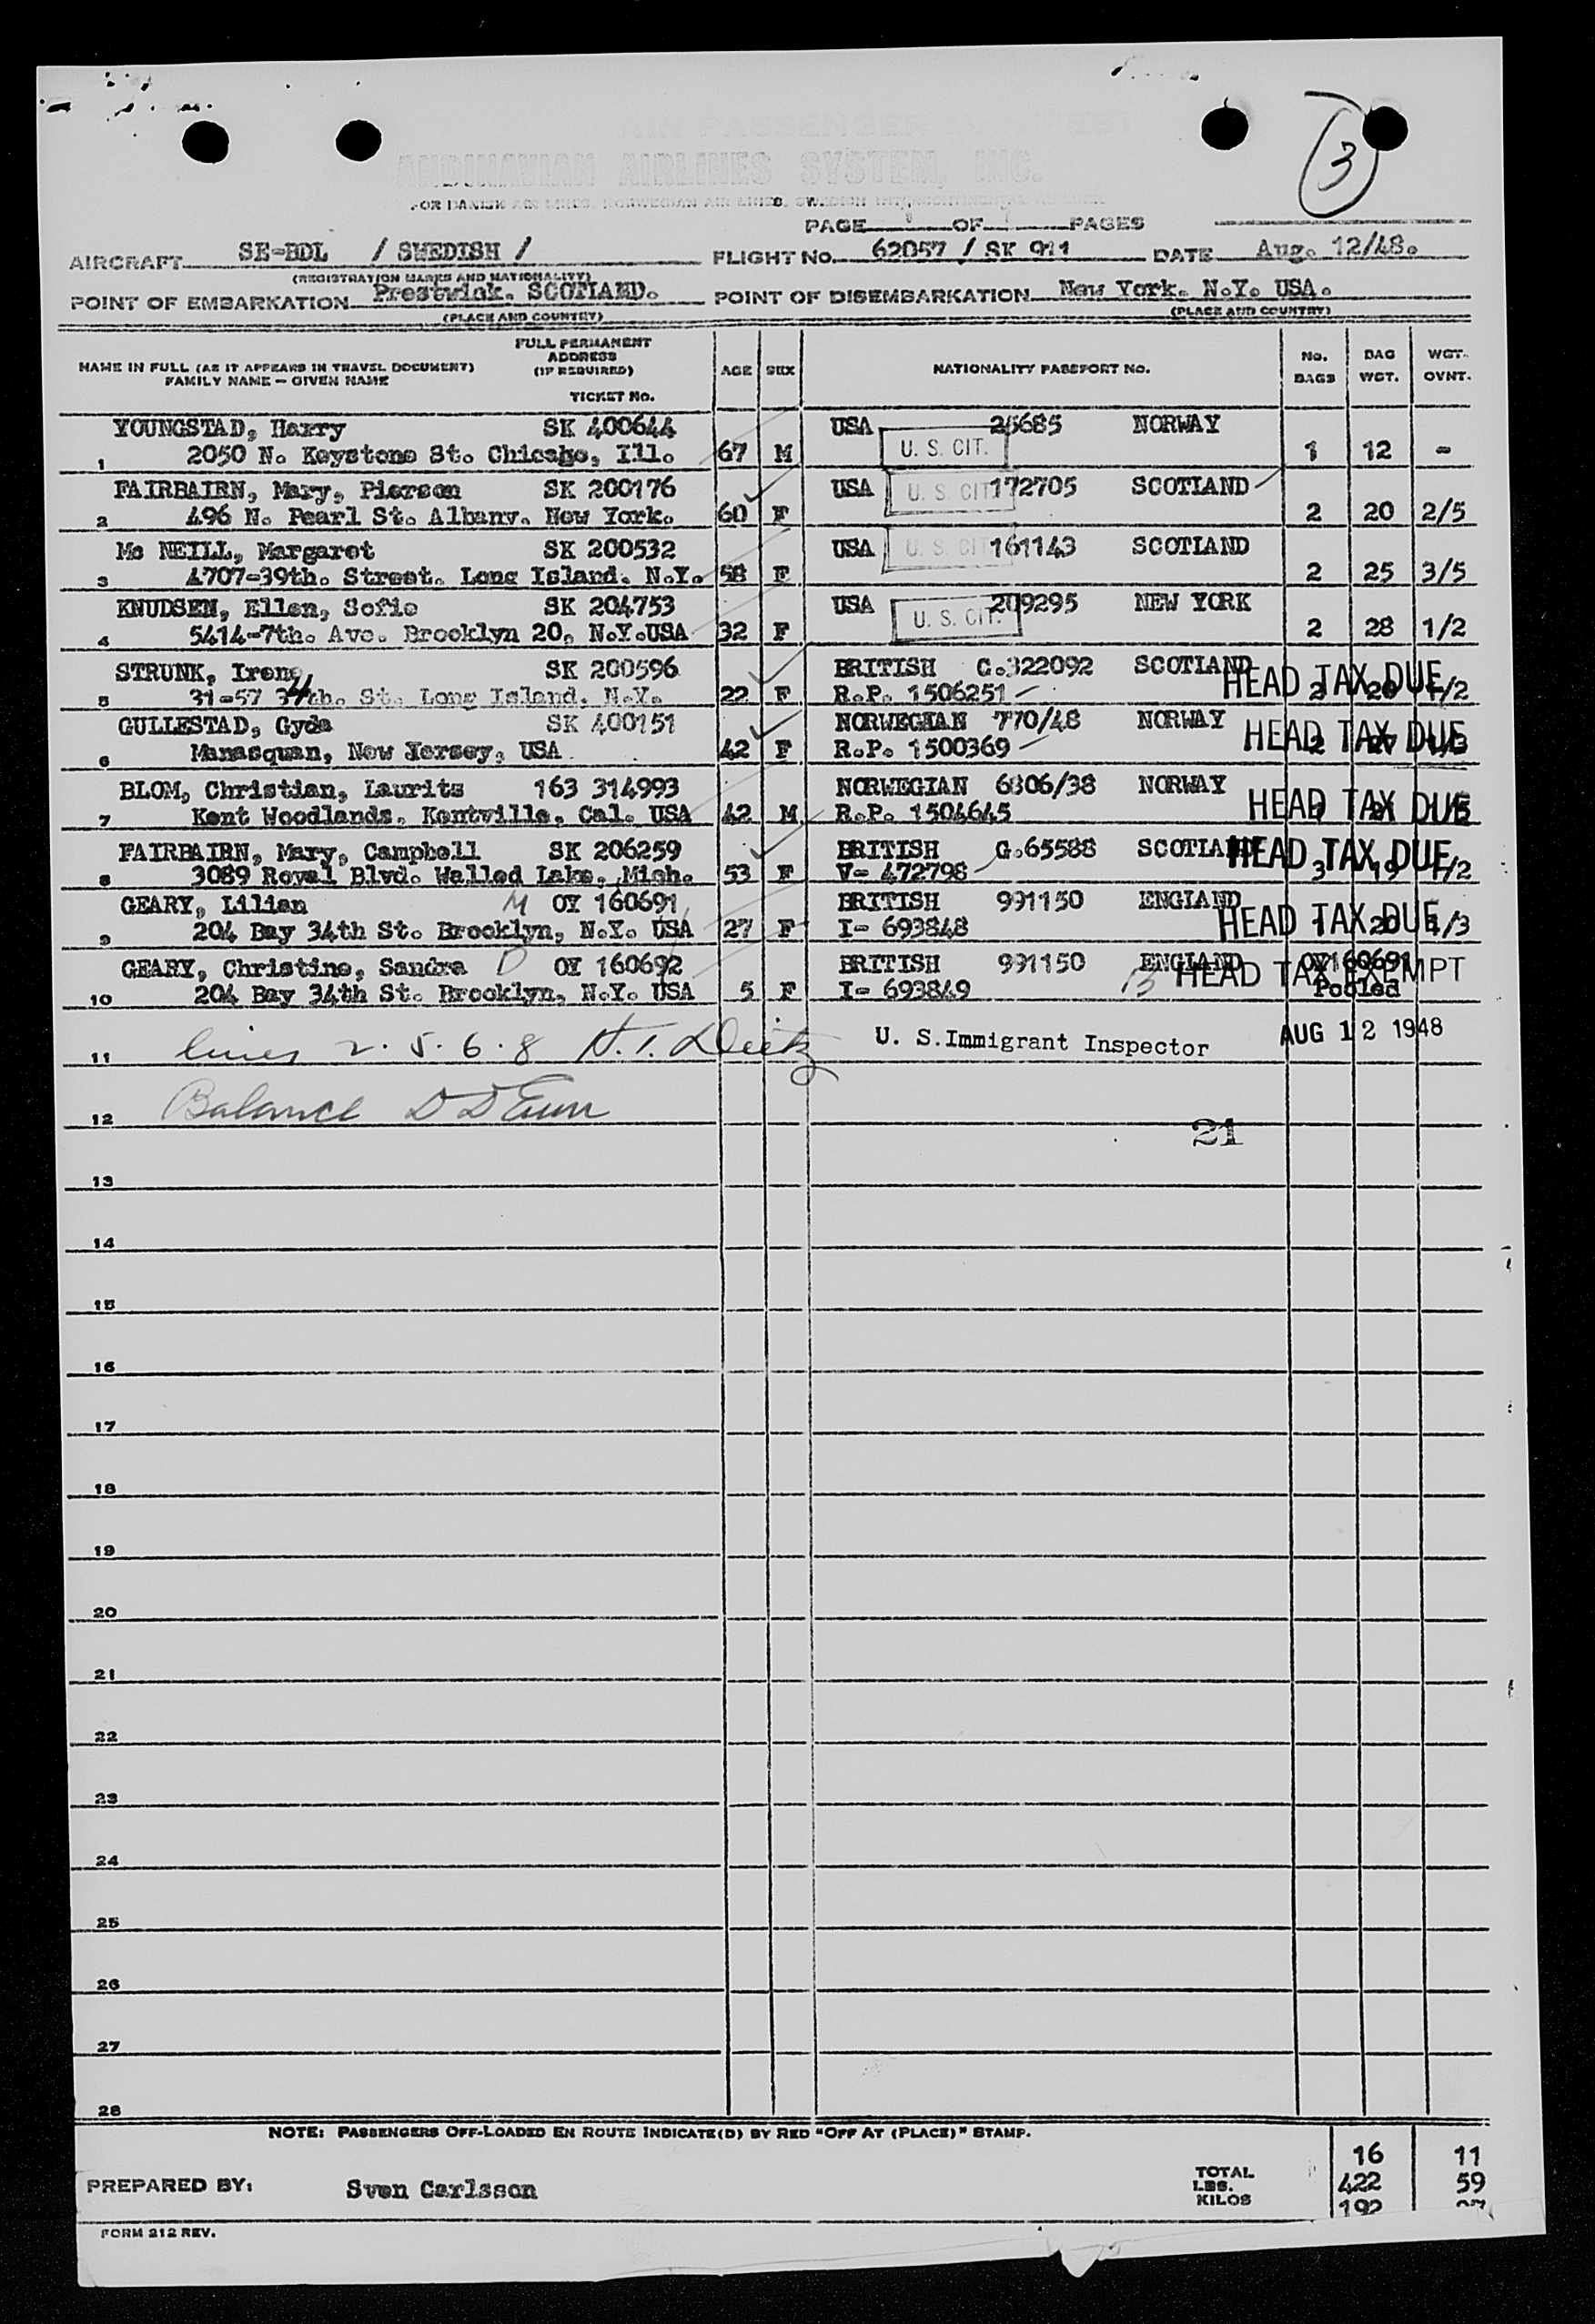 3
ANDINAVIAN AIRLINES SYSTEM, INC.
PAGE OF PAGES
AIRCRAFT SE-BDL / SWEDISH / FLIGHT No. 62057 / SK 911 DATE Aug. 12/48.
(REGISTRATION MARKS AND NATIONALITY)
POINT OF EMBARKATION Prestwick. SCOTLAND. POINT OF DISEMBARKATION New York. N.Y. USA.
(PLACE AND COUNTRY) (PLACE AND COUNTRY)
NAME IN FULL (AS IT APPEARS IN TRAVEL DOCUMENT) FAMILY NAME — GIVEN NAME FULL PERMANENT ADDRESS (IF REQUIRED) TICKET No. AGE SEX NATIONALITY PASSPORT No. No. BAGS BAG WGT. WGT. OVNT.
YOUNGSTAD, Harry SK 400644 USA 25685 NORWAY
1 2050 N. Keystone St. Chicago, Ill. 67 M U. S. CIT. 1 12 -
FAIRBAIRN, Mary, Pierson SK 200176 USA U. S. CIT 172705 SCOTLAND
2 496 N. Pearl St. Albany. New York. 60 F 2 20 2/5
Mc NEILL, Margaret SK 200532 USA U. S. CIT 161143 SCOTLAND
3 4707-39th. Street. Long Island. N.Y. 58 F 2 25 3/5
KNUDSEN, Ellen, Sofie SK 204753 USA 209295 NEW YORK
4 5414-7th. Ave. Brooklyn 20, N.Y.USA 32 F U. S. CIT. 2 28 1/2
STRUNK, Irene SK 200596 BRITISH G.322092 SCOTLAND HEAD TAX DUE
5 31-57 th. St. Long Island. N.Y. 22 F R.P. 1506251 2 1/2
GULLESTAD, Gyda SK 400151 NORWEGIAN 770/48 NORWAY HEAD TAX DUE
6 Manasquan, New Jersey, USA 42 F R.P. 1500369
BLOM, Christian, Laurits 163 314993 NORWEGIAN 6806/38 NORWAY HEAD TAX DUE
7 Kent Woodlands. Kentville. Cal. USA 42 M R.P. 1504645
FAIRBAIRN, Mary, Campbell SK 206259 BRITISH G.65588 SCOTLAND HEAD TAX DUE
8 3089 Royal Blvd. Walled Lake. Mich. 53 F V- 472798 3 19 1/2
GEARY, Lilian M OY 160691 BRITISH 991150 ENGLAND HEAD TAX DUE
9 204 Bay 34th St. Brooklyn, N.Y. USA 27 F I- 693848 20 1/3
GEARY, Christine, Sandra D OY 160692 BRITISH 991150 ENGLAND OY160691 HEAD TAX EXEMPT
10 204 Bay 34th St. Brooklyn, N.Y. USA 5 F I- 693849 13 Pooled
11 lines 2. 5. 6. 8 H.T. Dietz U. S. Immigrant Inspector AUG 12 1948
12 Balance
21
13
14
15
16
17
18
19
20
21
22
23
24
25
26
27
28
NOTE: PASSENGERS OFF-LOADED EN ROUTE INDICATE(D) BY RED "OFF AT (PLACE)" STAMP.
PREPARED BY: Sven Carlsson
TOTAL 16 11
LBS. 422 59
KILOS 192
FORM 212 REV.